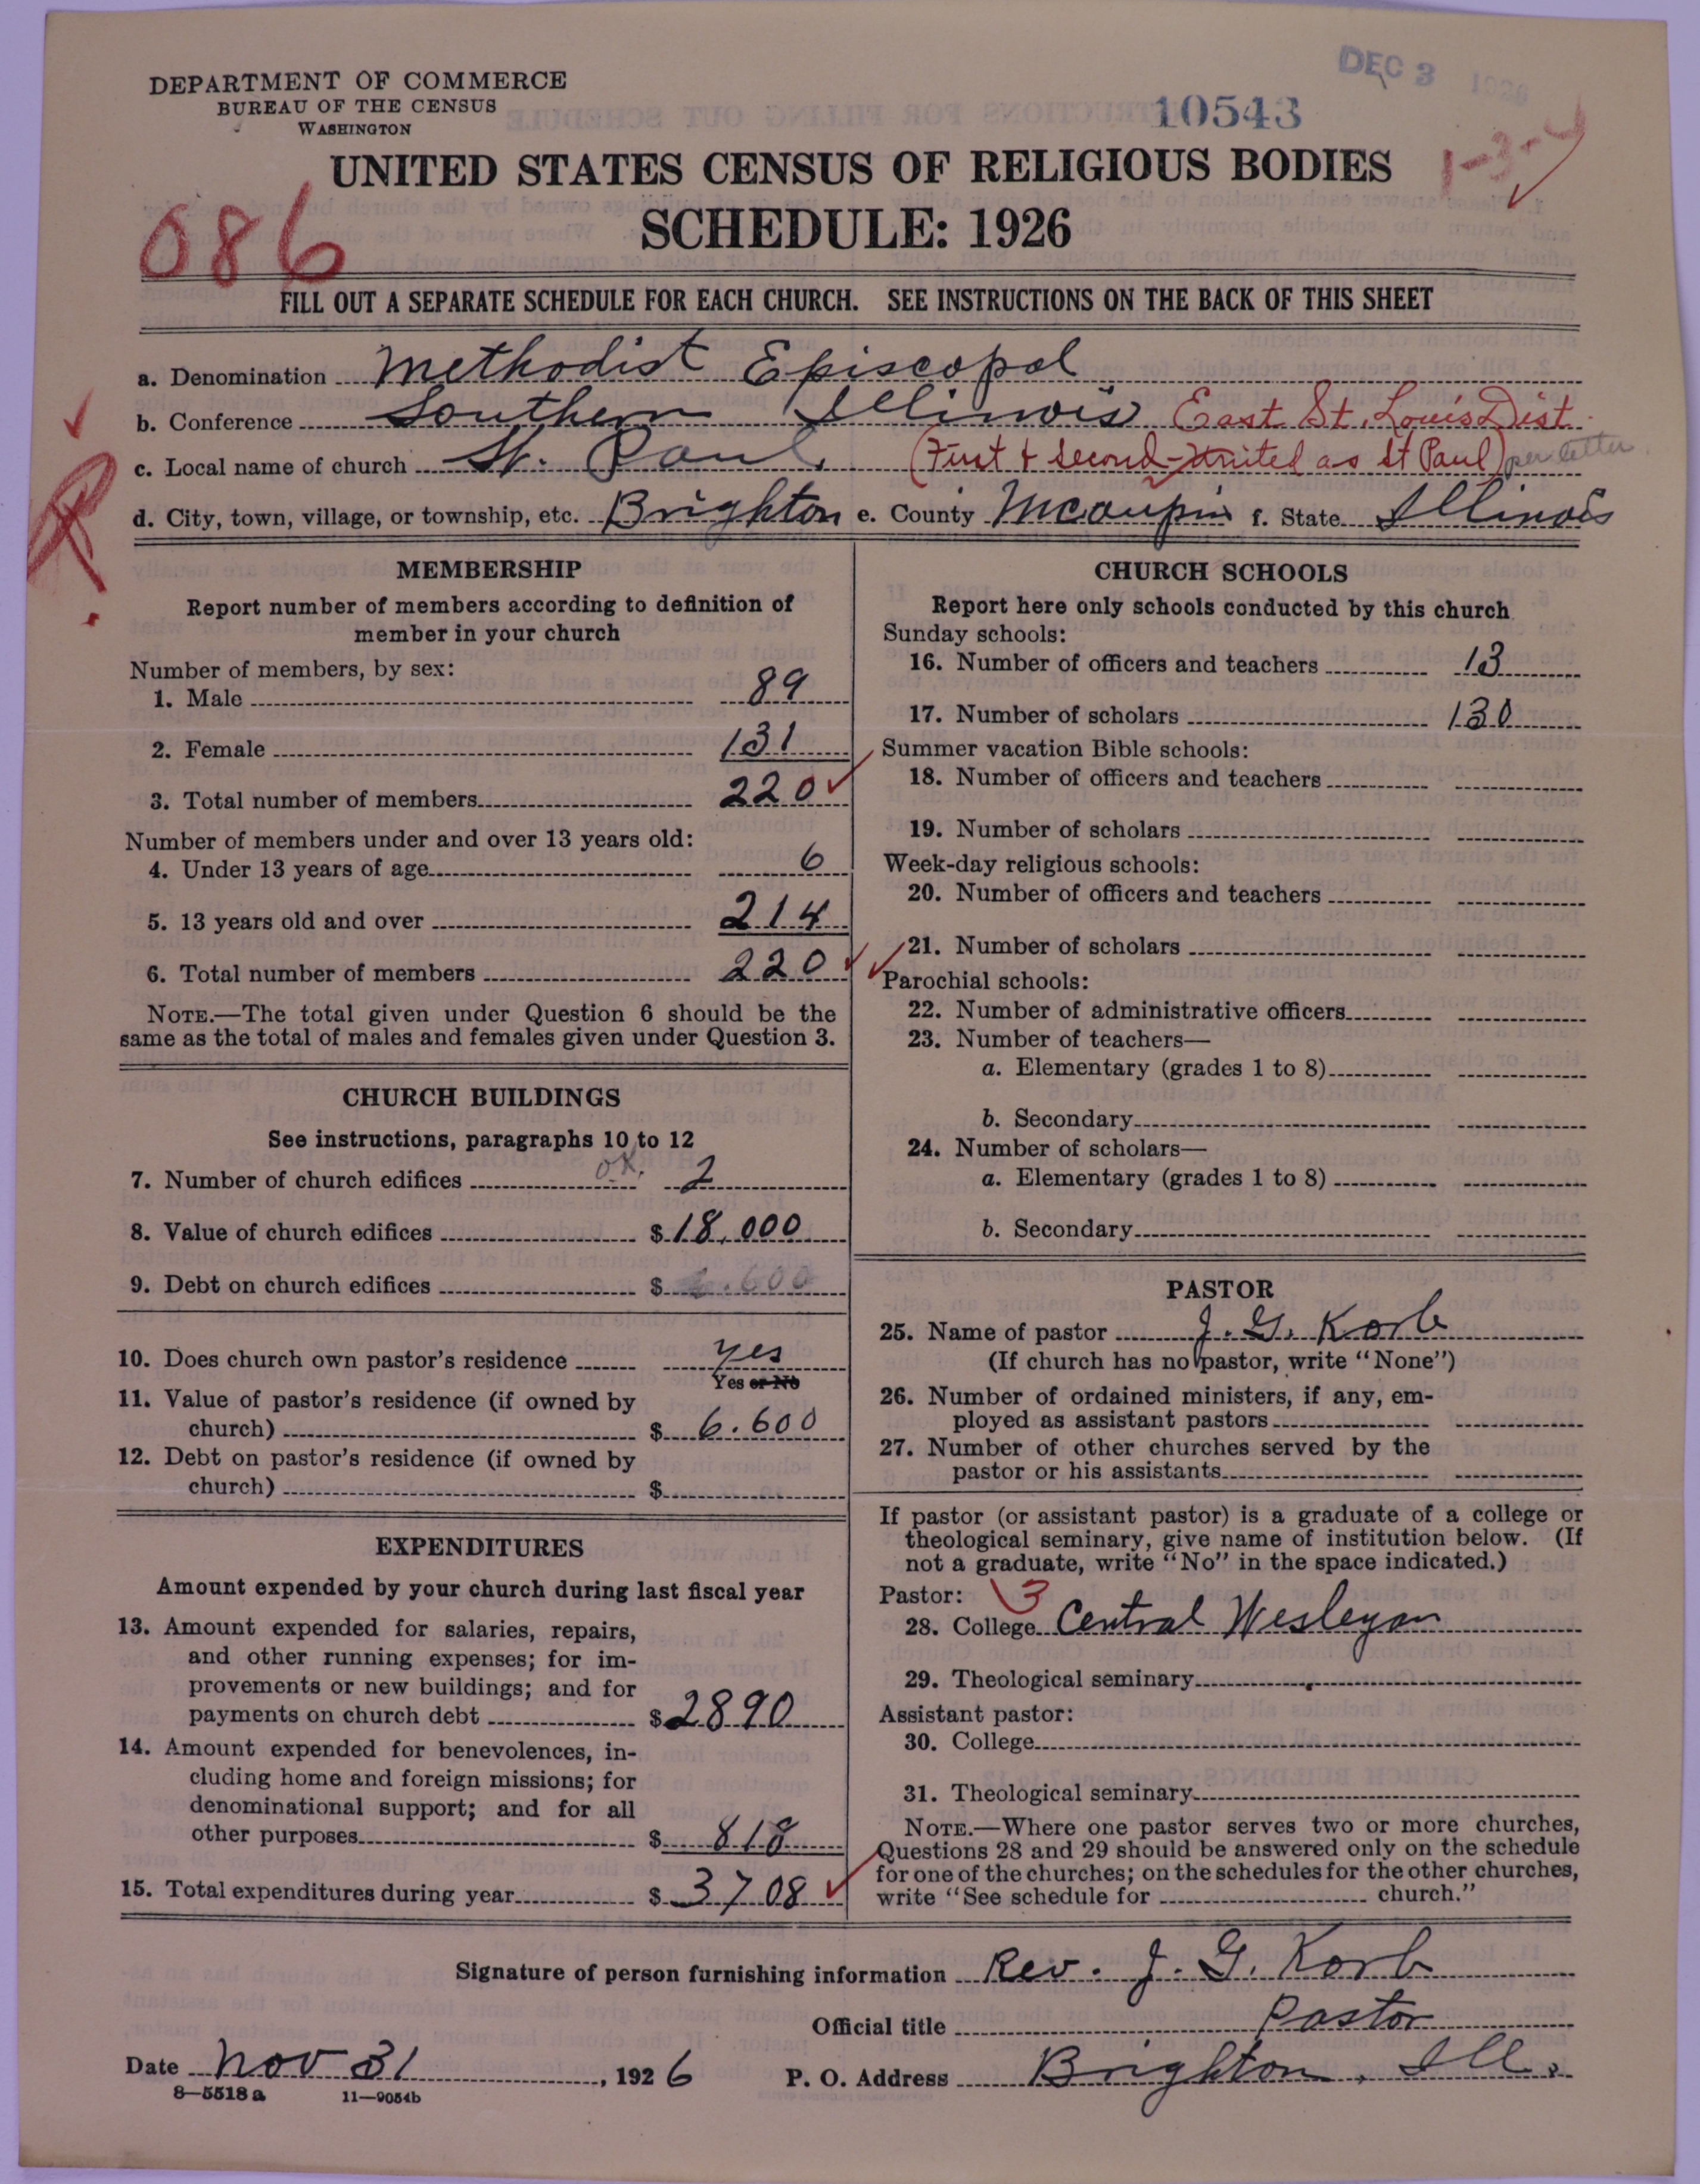 DEC 3 1926
DEPARTMENT OF COMMERCE
BUREAU OF THE CENSUS
WASHINGTON
10543
1-3-4
UNITED STATES CENSUS OF RELIGIOUS BODIES
SCHEDULE: 1926
086
FILL OUT A SEPARATE SCHEDULE FOR EACH CHURCH. SEE INSTRUCTIONS ON THE BACK OF THIS SHEET
a. Denomination Methodist Episcopal
b. Conference Southern Illinois East St. Louis Dist.
c. Local name of church St. Paul (First & Second united as St Paul) per letter
d. City, town, village, or township, etc. Brighton e. County Mcaupin f. State Illinois
MEMBERSHIP
Report number of members according to definition of
member in your church
Number of members, by sex:
1. Male 89
2. Female 131
3. Total number of members 220
Number of members under and over 13 years old:
4. Under 13 years of age 6
5. 13 years old and over 214
6. Total number of members 220
NOTE.—The total given under Question 6 should be the
same as the total of males and females given under Question 3.
CHURCH BUILDINGS
See instructions, paragraphs 10 to 12
7. Number of church edifices OK. 2
8. Value of church edifices $ 18,000
9. Debt on church edifices $ 6.600
10. Does church own pastor's residence yes
Yes or No
11. Value of pastor's residence (if owned by
church) $ 6.600
12. Debt on pastor's residence (if owned by
church) $
EXPENDITURES
Amount expended by your church during last fiscal year
13. Amount expended for salaries, repairs,
and other running expenses; for im-
provements or new buildings; and for
payments on church debt $ 2890
14. Amount expended for benevolences, in-
cluding home and foreign missions; for
denominational support; and for all
other purposes $ 818
15. Total expenditures during year $ 3708
CHURCH SCHOOLS
Report here only schools conducted by this church
Sunday schools:
16. Number of officers and teachers 13
17. Number of scholars 130
Summer vacation Bible schools:
18. Number of officers and teachers
19. Number of scholars
Week-day religious schools:
20. Number of officers and teachers
21. Number of scholars
Parochial schools:
22. Number of administrative officers
23. Number of teachers—
a. Elementary (grades 1 to 8)
b. Secondary
24. Number of scholars—
a. Elementary (grades 1 to 8)
b. Secondary
PASTOR
25. Name of pastor J. G. Korb
(If church has no pastor, write "None")
26. Number of ordained ministers, if any, em-
ployed as assistant pastors
27. Number of other churches served by the
pastor or his assistants
If pastor (or assistant pastor) is a graduate of a college or
theological seminary, give name of institution below. (If
not a graduate, write "No" in the space indicated.)
Pastor: 3
28. College Central Wesleyan
29. Theological seminary
Assistant pastor:
30. College
31. Theological seminary
NOTE.—Where one pastor serves two or more churches,
Questions 28 and 29 should be answered only on the schedule
for one of the churches; on the schedules for the other churches,
write "See schedule for church."
Signature of person furnishing information Rev. J. G. Korb
Official title Pastor
Date Nov 31, 1926 P. O. Address Brighton, Ill.
8—5518 a 11—9054b